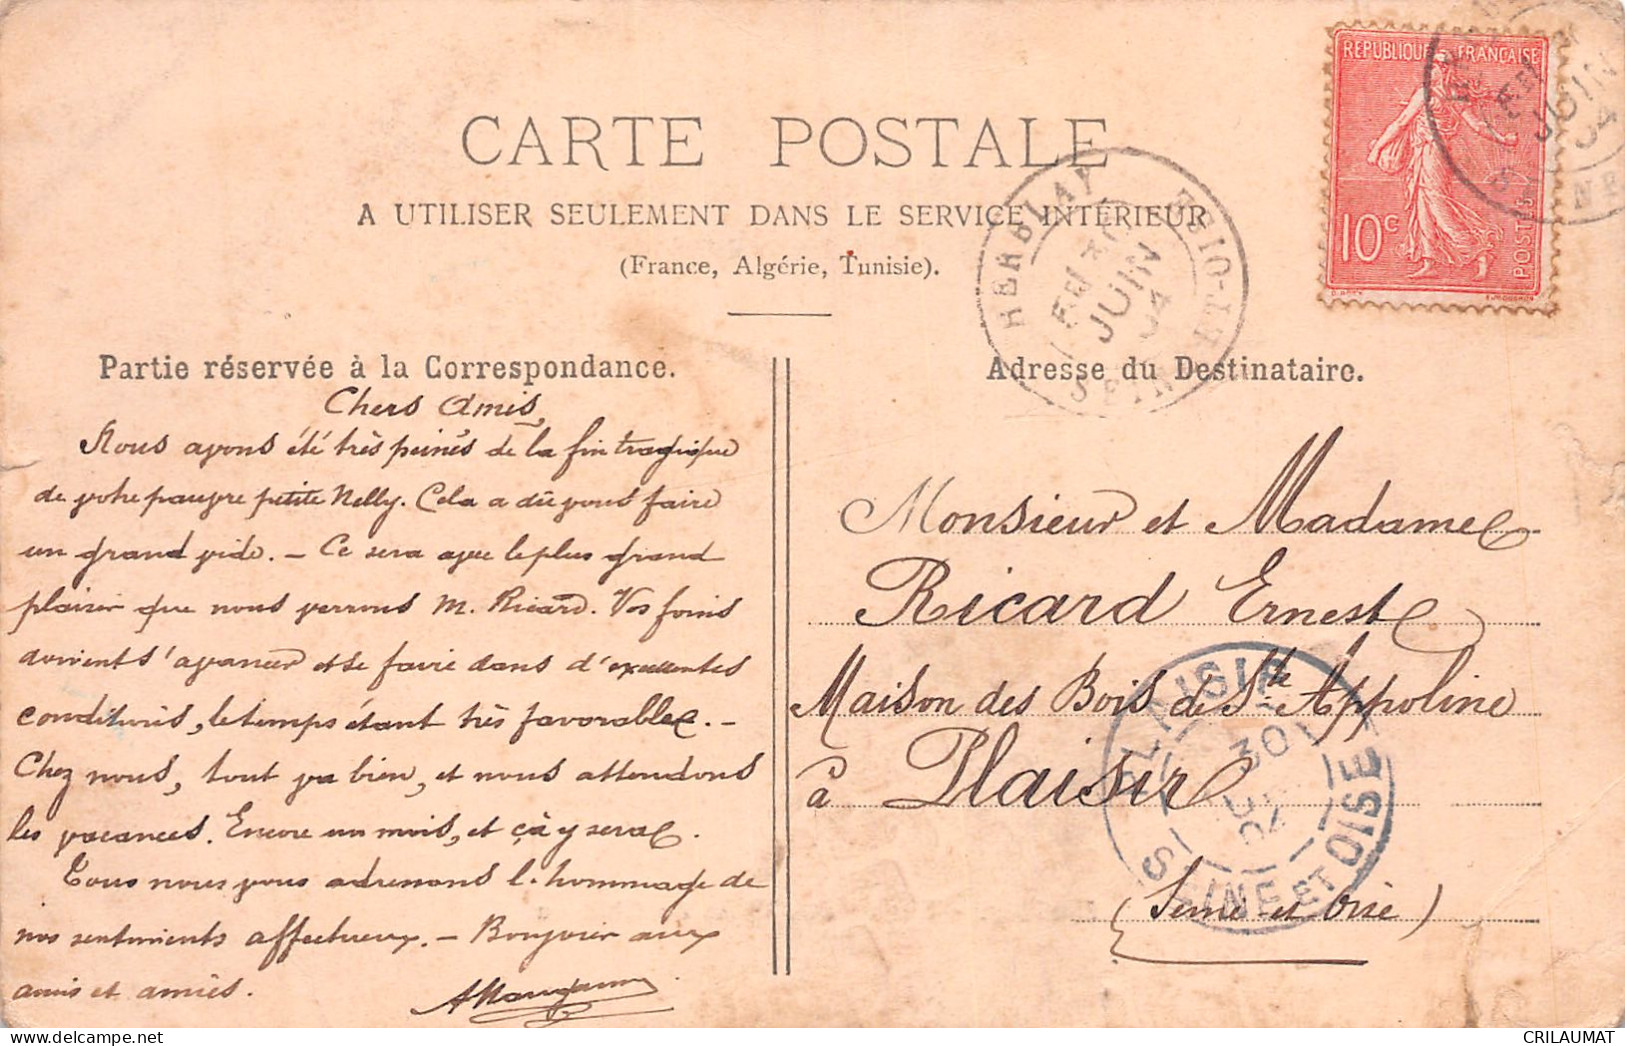 CARTE POSTALE
A UTILISER SEULEMENT DANS LE SERVICE INTÉRIEUR
(France, Algérie, Tunisie).
RÉPUBLIQUE FRANÇAISE
10c
POSTES
JUIN
04
HERBLAY
SEINE-ET-OISE
JUIN
04
Partie réservée à la Correspondance.
Chers Amis,
Nous avons été très peinés de la fin tragique
de votre pauvre petite Nelly. Cela a dû vous faire
un grand vide. — Ce sera avec le plus grand
plaisir que nous verrons M. Ricard. Vos foins
doivent s'avancer et se faire dans d'excellentes
conditions, le temps étant très favorable. —
Chez nous, tout va bien, et nous attendons
les vacances. Encore un mois, et çà y sera.
Tous nous vous adressons l'hommage de
nos sentiments affectueux. — Bonjour aux
amis et amies.
Adresse du Destinataire.
Monsieur et Madame
Ricard Ernest
Maison des Bois de Ste Appoline
à Plaisir
(Seine et Oise)
PLAISIR
30
04
SEINE ET OISE
CRILAUMAT